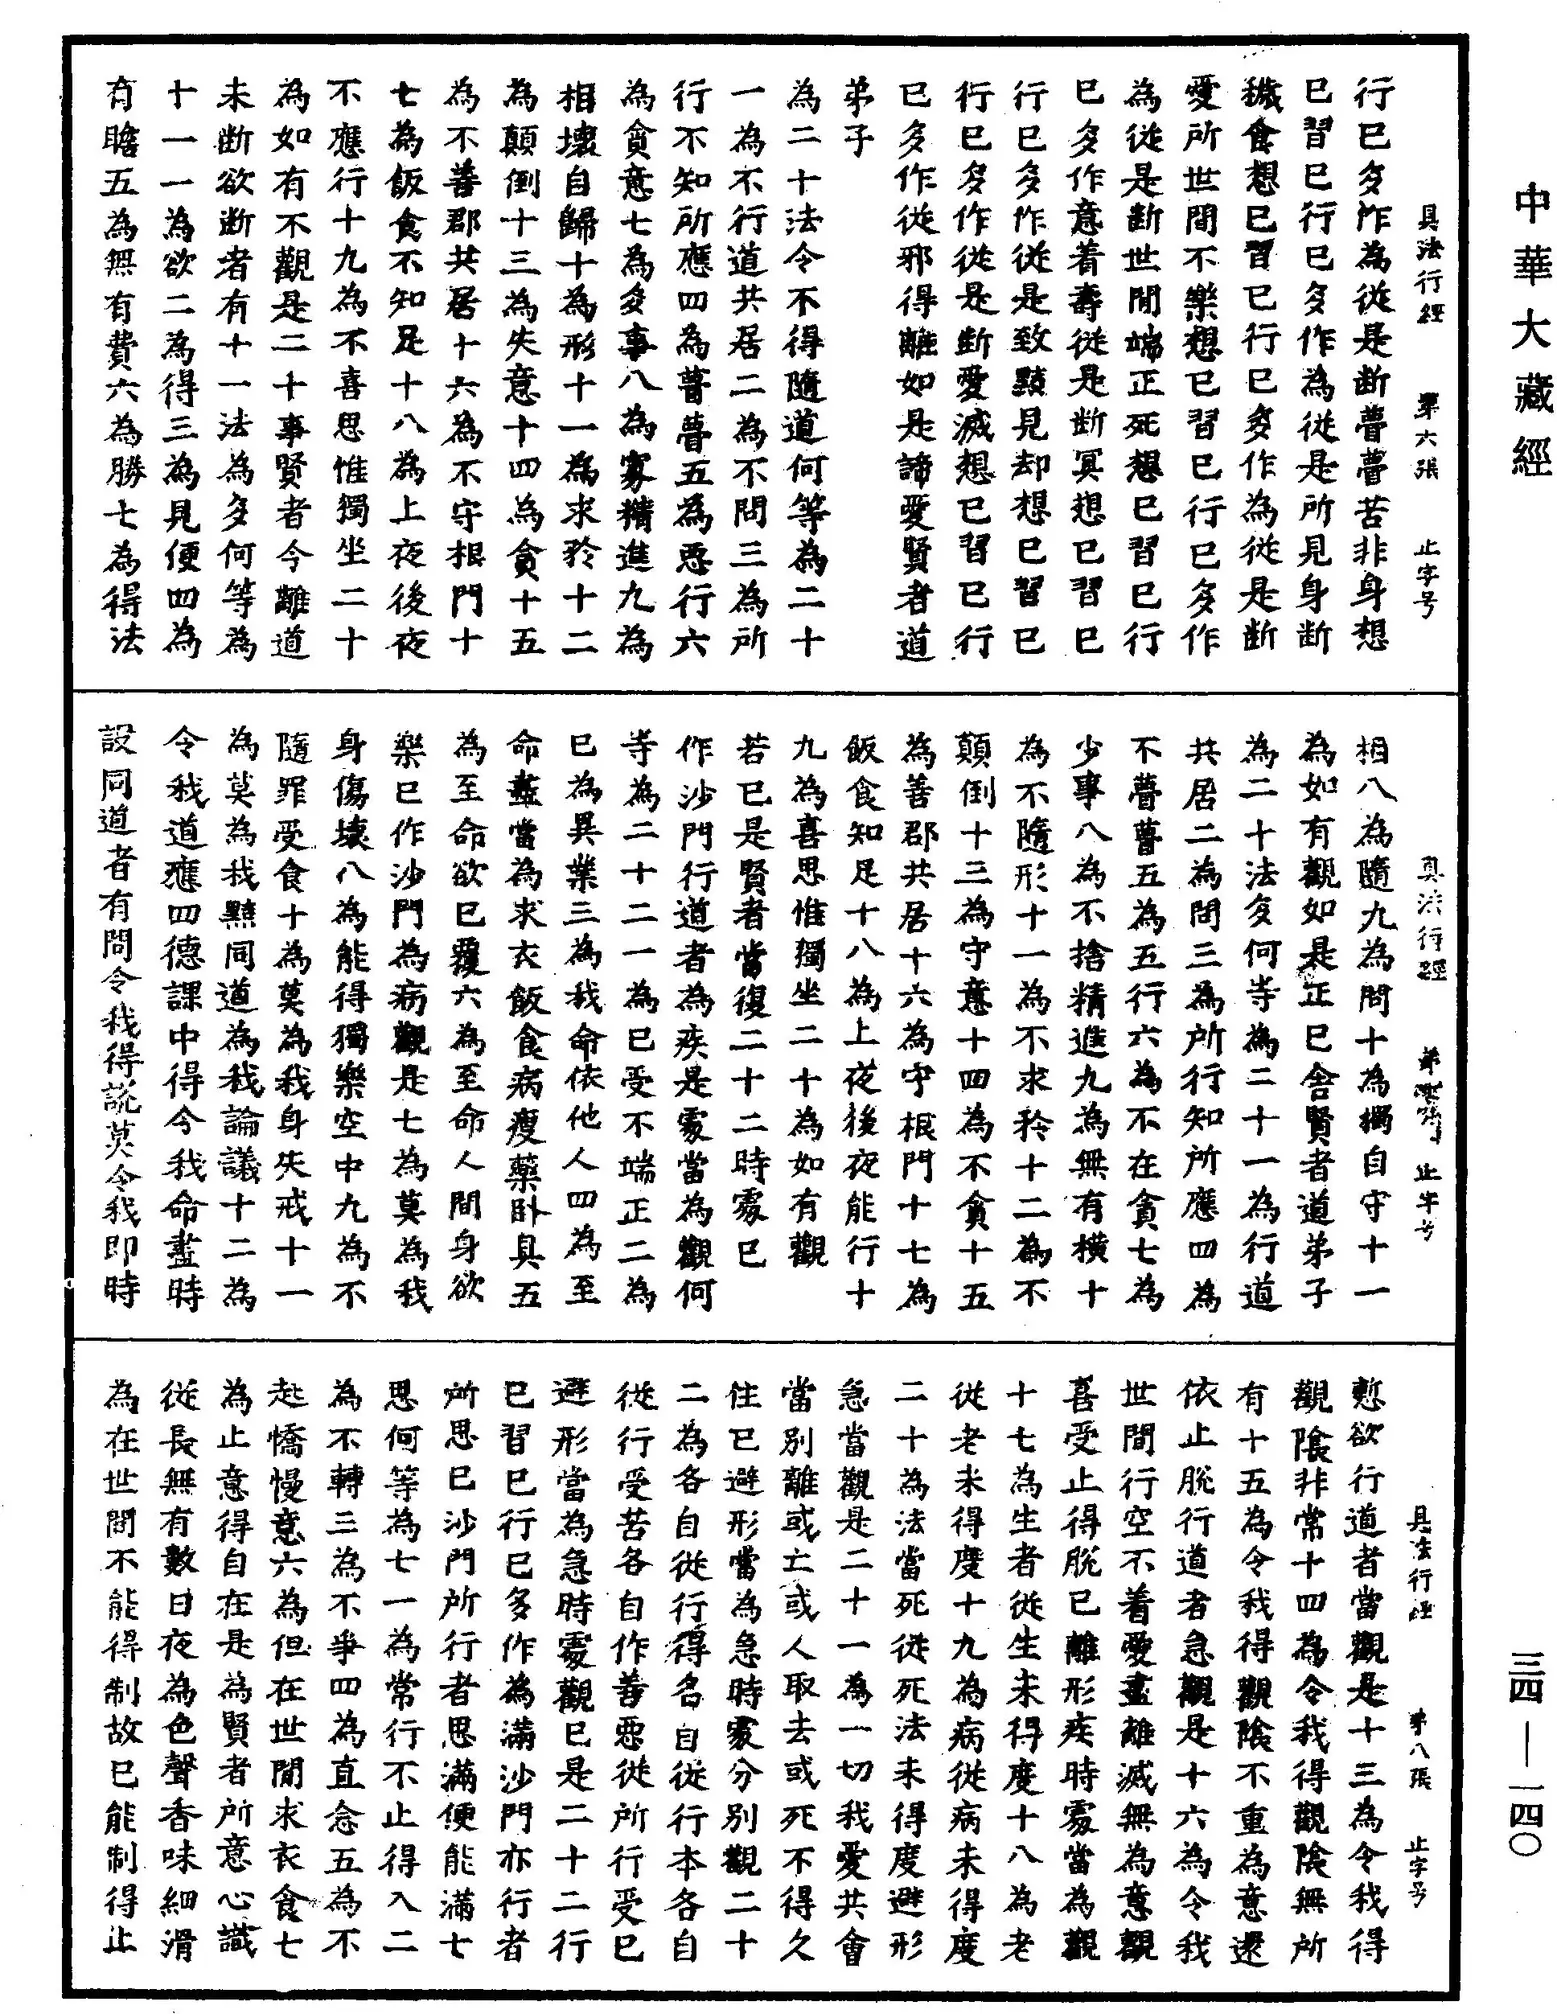 中華大藏經
具法行經 第六張 止字号
行已多作為從是断瞢瞢苦非身想
已習已行已多作為從是所見身断
穢食想已習已行已多作為從是断
愛所世間不樂想已習已行已多作
為從是断世間端正死想已習已行
已多作意着壽從是断冥想已習已
行已多作從是致黠見却想已習已
行已多作從是断愛滅想已習已行
已多作從邪得離如是諦愛賢者道
弟子
為二十法令不得隨道何等為二十
一為不行道共居二為不問三為所
行不知所應四為瞢瞢五為惡行六
為貪意七為多事八為寡精進九為
相壞自歸十為形十一為求矜十二
為顛倒十三為失意十四為貪十五
為不善郡共居十六為不守根門十
七為飯食不知足十八為上夜後夜
不應行十九為不喜思惟獨坐二十
為如有不觀是二十事賢者今離道
未断欲断者有十一法為多何等為
十一一為欲二為得三為見便四為
有瞻五為無有費六為勝七為得法
具法行經 止字号
相八為隨九為問十為獨自守十一
為如有觀如是正已舍賢者道弟子
為二十法多何等為二十一為行道
共居二為問三為所行知所應四為
不瞢瞢五為五行六為不在貪七為
少事八為不捨精進九為無有橫十
為不隨形十一為不求矜十二為不
顛倒十三為守意十四為不貪十五
為善郡共居十六為守根門十七為
飯食知足十八為上夜後夜能行十
九為喜思惟獨坐二十為如有觀
若已是賢者當復二十二時處已
作沙門行道者為疾是處當為觀何
等為二十二一為已受不端正二為
已為異業三為我命依他人四為至
命盡當為求衣飯食病瘦藥卧具五
為至命欲已覆六為至命人間身欲
樂已作沙門為病觀是七為莫為我
身傷壞八為能得獨樂空中九為不
隨罪受食十為莫為我身失戒十一
為莫為我黠同道為我論議十二為
令我道應四德課中得今我命盡時
設同道者有問令我得說莫令我即時
具法行經 第八張 止字号
慙欲行道者當觀是十三為令我得
觀陰非常十四為令我得觀陰無所
有十五為令我得觀陰不重為意還
依止脫行道者急觀是十六為令我
世間行空不着愛盡離滅無為意觀
喜受止得脫已離形疾時處當為觀
十七為生者從生未得度十八為老
從老未得度十九為病從病未得度
二十為法當死從死法未得度避形
急當觀是二十一為一切我愛共會
當別離或亡或人取去或死不得久
住已避形當為急時處分別觀二十
二為各自從行得名自從行本各自
從行受苦各自作善惡從所行受已
避形當為急時處觀已是二十二行
已習已行已多作為滿沙門亦行者
所思已沙門所行者思滿便能滿七
思何等為七一為常行不止得入二
為不轉三為不爭四為直念五為不
起憍慢意六為但在世間求衣食七
為止意得自在是為賢者所意心識
從長無有數日夜為色聲香味細滑
為在世間不能得制故已能制得止
三四—一四〇